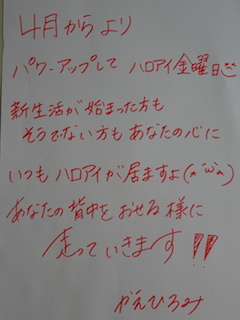 4月からより
パワーアップして ハロアイ金曜日で
新生活が始まった方も
そうでない方も あなたの心に
いつも ハロアイが居ますよ(*´ω`*)
あなたの背中をおせる様に
走っていきます!!
かえひろみ